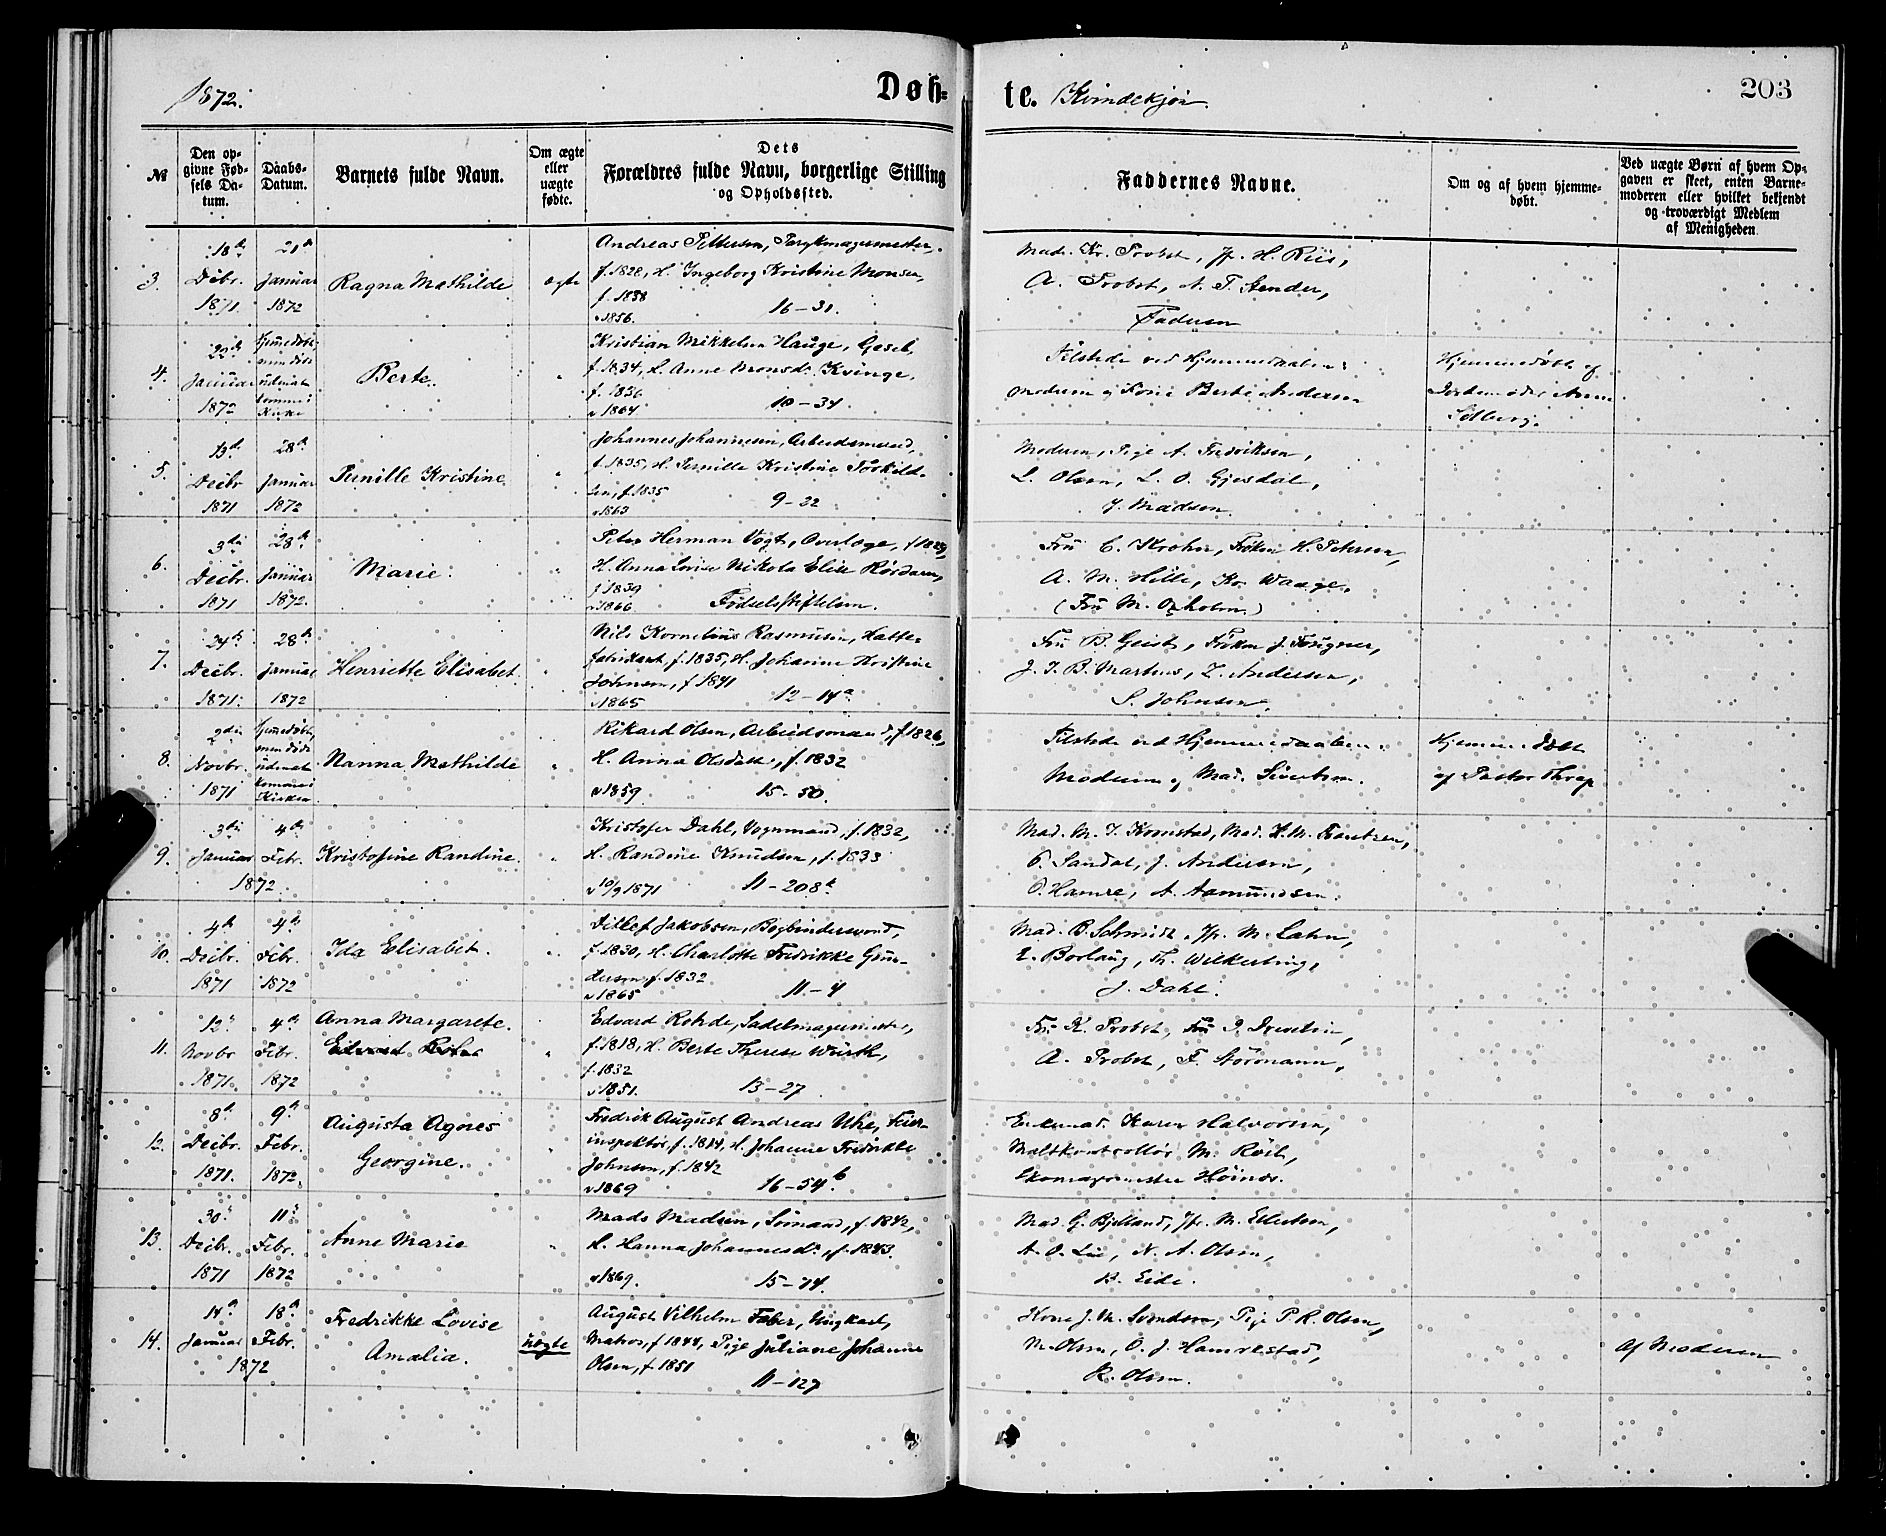 1872.
Døb-
te. Kvindekjøn.
203
№
Den op-
givne Fød-
sels Da-
tum.
Daabs-
Datum.
Barnets fulde Navn.
Om ægte
eller
uægte
fødte.
Dets
Forældres fulde Navn, borgerlige Stilling
og Opholdssted.
Faddernes Navne.
Om og af hvem hjemme-
døbt.
Ved uægte Børn af hvem Op-
gaven er skeet, enten Barne-
moderen eller hvilket bekjendt
og troværdigt Medlem
af Menigheden.
3.
18de
Decbr.
1871.
21de
Januar
1872
Ragna Mathilde
ægte
Andreas Pettersen, Parykmagermester,
f. 1828, H. Ingeborg Kristine Monsen,
f. 1838
v 1856. 16-31.
Mad. Kr. Probst, Jfr. H. Riis,
A. Probst, N. T. Stender,
Faderen
4.
Januar
1872
Hjemmedøbt,
men døde
udenat
komme i
Kirke
Berte.
"
Kristian Mikkelsen Hauge, Gesel,
f. 1834, H. Anne Monsdr. Kvinge,
f. 1836
v 1864 10-34.
Tilstede ved Hjemmedaaben:
Moderen og Kone Berte Andersen
Hjemmedøbt af
Jordemoder Anne
Solberg.
5.
Decbr
1871
28de
Januar
1872
Pernille Kristine
"
Johannes Johannesen, Arbeidsmand,
f. 1835, H. Pernille Kristine Torkild-
sen, f. 1835
v 1863 9-22
Moderen, Pige A. Fredriksen,
L. Olsen, L. O. Gjesdal,
J. Madsen.
6.
3die
Decbr.
1871
28de
Januar
1872.
Marie.
"
Peter Herman Vogt, Overlæge, f 1829,
f 1839
v 1866 Fødselsstiftelsen.
Fru C. Krohn, Frøken H. Petersen,
A. M. Hille, Kr. Waage,
(Fru M. Oxholm.)
7.
24de
Decbr.
1871.
28de
Januar
1872
Henriette Elisabet.
"
Nils Kornelius Rasmusen, Hatte-
fabrikant, f. 1835, H. Johanne Kristine
Johnsen, f 1841
v 1865 12-14a
Fru B. Geist, Frøken J.
J. J. B. Martens, Z. Andersen,
S. Johnsen.
8.
2den
Novbr.
1871
Hjemmedøbt,
men døde
udenat
komme i
Kirken
Nanna Mathilde
"
Rikard Olsen, Arbeidsmand, f 1826,
H. Anna Olsdatter, f. 1832
v 1859 15-50.
Tilstede ved Hjemmedaaben:
Moderen og Mad. Sivertsen.
Hjemmedøbt
af Pastor Thrap
9.
3die
Januar
4de
Febr.
1872.
Kristofine Randine.
"
Kristofer Dahl, Vognmand, f. 1832,
H. Randine Knudsen, f. 1833
v 10/9 1871 11-208b
Mad. M. J. Kronstad, Mad. H. M. Frantzen,
P. Sandal, J. Andersen,
O. Hamre, A. Aamundsen.
10.
4de
Decbr.
1871
4de
Febr.
1872
Ida Elisabet.
"
Ditlef Jakobsen, Bogbindersvend,
f. 1830, H. Charlotte Fredrikke Gun-
dersen, f. 1832
v 1865 11-4
Mad. B. Schmidt, Jfr. M. Lahn,
E. Borlaug, Th. Wilkerling,
J. Dahl.
11.
12te
Novbr
1871.
4de
Febr.
1872
Anna Margarete.
"
Edvard Rohde, Sadelmagermester,
f. 1818, H. Berte Therese Würth,
f. 1832
v 1851. 13-27
Fru K. Probst, Fru
A. Probst, F. Störmann.
12.
8de
Decbr.
1871.
9de
Febr.
1872.
Augusta Agnes
Georgine.
"
Fredrik August Andreas Uhe, Feier-
inspektør, f. 1814, H. Johanne Fredrikke
Johnsen, f. 1842
v 1869 16-54b
Enkemad. Karen Halvorsen,
Maltkontrollør M. Röil,
Skomagermester Höines.
13.
30te
Decbr.
1871
11te
Febr.
1872
Anne Marie
"
Mads Madsen, Sømand, f. 1842,
H. Hanna Johannesdr., f. 1843.
v 1869. 15-74.
Mad. G. Bjelland, Jfr. M. Ellertsen,
A. O. Lie, N. A. Olsen,
B. Eide.
14.
14de
Januar
18de
Febr.
1872
Fredrikke Lovise
Amalia.
uægte
August Vilhelm Faber, Ungkarl,
Matros, f 1844, Pige Juliane Johanne
Olsen, f. 1851
11-127
Kone J. M. Svendsen, Pige P. R. Olsen,
M. Olsen, O. J. Hamrestad,
R. Olsen.
Af Moderen